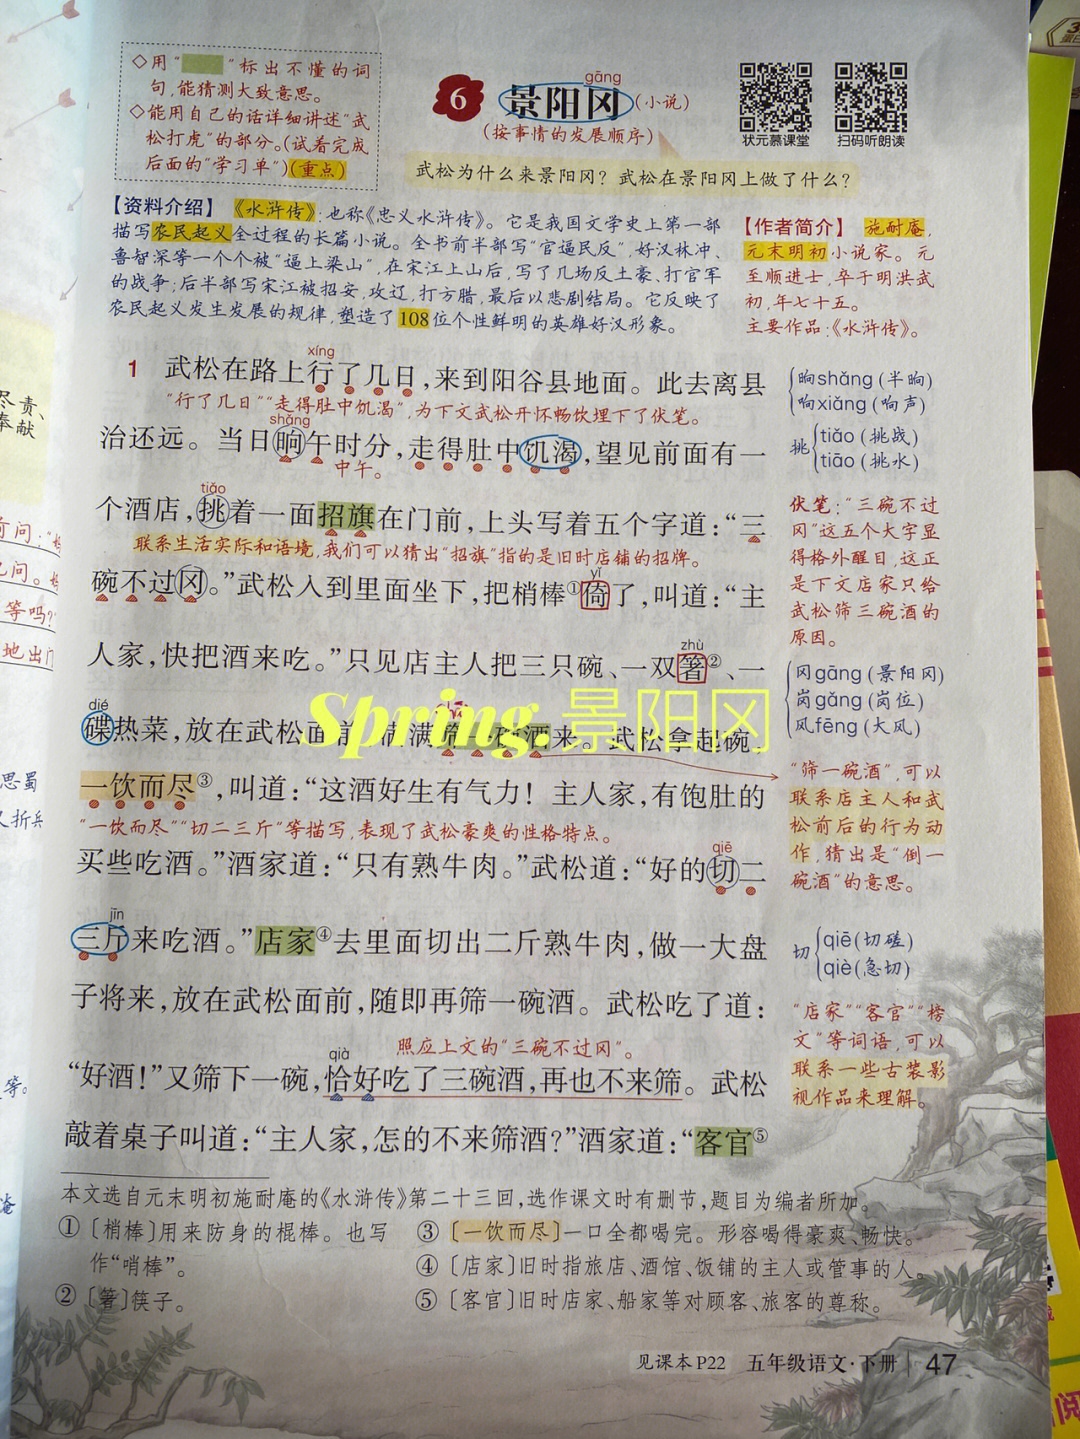 ◇用“ ”标出不懂的词
句,能猜测大致意思。
◇能用自己的话详细讲述“武
松打虎”的部分。(试着完成
后面的“学习单”)(重点)
gāng
6 景阳冈(小说)
(按事情的发展顺序)
状元慕课堂 扫码听朗读
武松为什么来景阳冈?武松在景阳冈上做了什么?
【资料介绍】《水浒传》:也称《忠义水浒传》。它是我国文学史上第一部
描写农民起义全过程的长篇小说。全书前半部写“官逼民反”,好汉林冲、
鲁智深等一个个被“逼上梁山”,在宋江上山后,写了几场反土豪、打官军
的战争;后半部写宋江被招安,攻辽,打方腊,最后以悲剧结局。它反映了
农民起义发生发展的规律,塑造了108位个性鲜明的英雄好汉形象。
【作者简介】施耐庵,
元末明初小说家。元
至顺进士,卒于明洪武
初,年七十五。
主要作品:《水浒传》。
xíng
1 武松在路上行了几日,来到阳谷县地面。此去离县
“行了几日”“走得肚中饥渴”,为下文武松开怀畅饮埋下了伏笔。
shǎng
治还远。当日晌午时分,走得肚中饥渴,望见前面有一
中午。
tiǎo
个酒店,挑着一面招旗在门前,上头写着五个字道:“三
联系生活实际和语境,我们可以猜出“招旗”指的是旧时店铺的招牌。
yǐ
碗不过冈。”武松入到里面坐下,把梢棒①倚了,叫道:“主
zhù
人家,快把酒来吃。”只见店主人把三只碗、一双箸②、一
dié
碟热菜,放在武松面前,满满筛一碗酒来。武松拿起碗,
Spring.景阳冈
一饮而尽③,叫道:“这酒好生有气力!主人家,有饱肚的
“一饮而尽”“切二三斤”等描写,表现了武松豪爽的性格特点。
qiē
买些吃酒。”酒家道:“只有熟牛肉。”武松道:“好的切二
jīn
三斤来吃酒。”店家④去里面切出二斤熟牛肉,做一大盘
子将来,放在武松面前,随即再筛一碗酒。武松吃了道:
照应上文的“三碗不过冈”。
qià
“好酒!”又筛下一碗,恰好吃了三碗酒,再也不来筛。武松
敲着桌子叫道:“主人家,怎的不来筛酒?”酒家道:“客官⑤
晌shǎng(半晌)
响xiǎng(响声)
挑 tiǎo(挑战)
tiāo(挑水)
伏笔:“三碗不过
冈”这五个大字显
得格外醒目,这正
是下文店家只给
武松筛三碗酒的
原因。
冈gāng(景阳冈)
岗gǎng(岗位)
风fēng(大风)
“筛一碗酒”,可以
联系店主人和武
松前后的行为动
作,猜出是“倒一
碗酒”的意思。
切 qiē(切磋)
qiè(急切)
“店家”“客官”“榜
文”等词语,可以
联系一些古装影
视作品来理解。
本文选自元末明初施耐庵的《水浒传》第二十三回,选作课文时有删节,题目为编者所加。
①〔梢棒〕用来防身的棍棒。也写
作“哨棒”。
②〔箸〕筷子。
③〔一饮而尽〕一口全都喝完。形容喝得豪爽、畅快。
④〔店家〕旧时指旅店、酒馆、饭铺的主人或管事的人。
⑤〔客官〕旧时店家、船家等对顾客、旅客的尊称。
见课本P22 五年级语文·下册 47